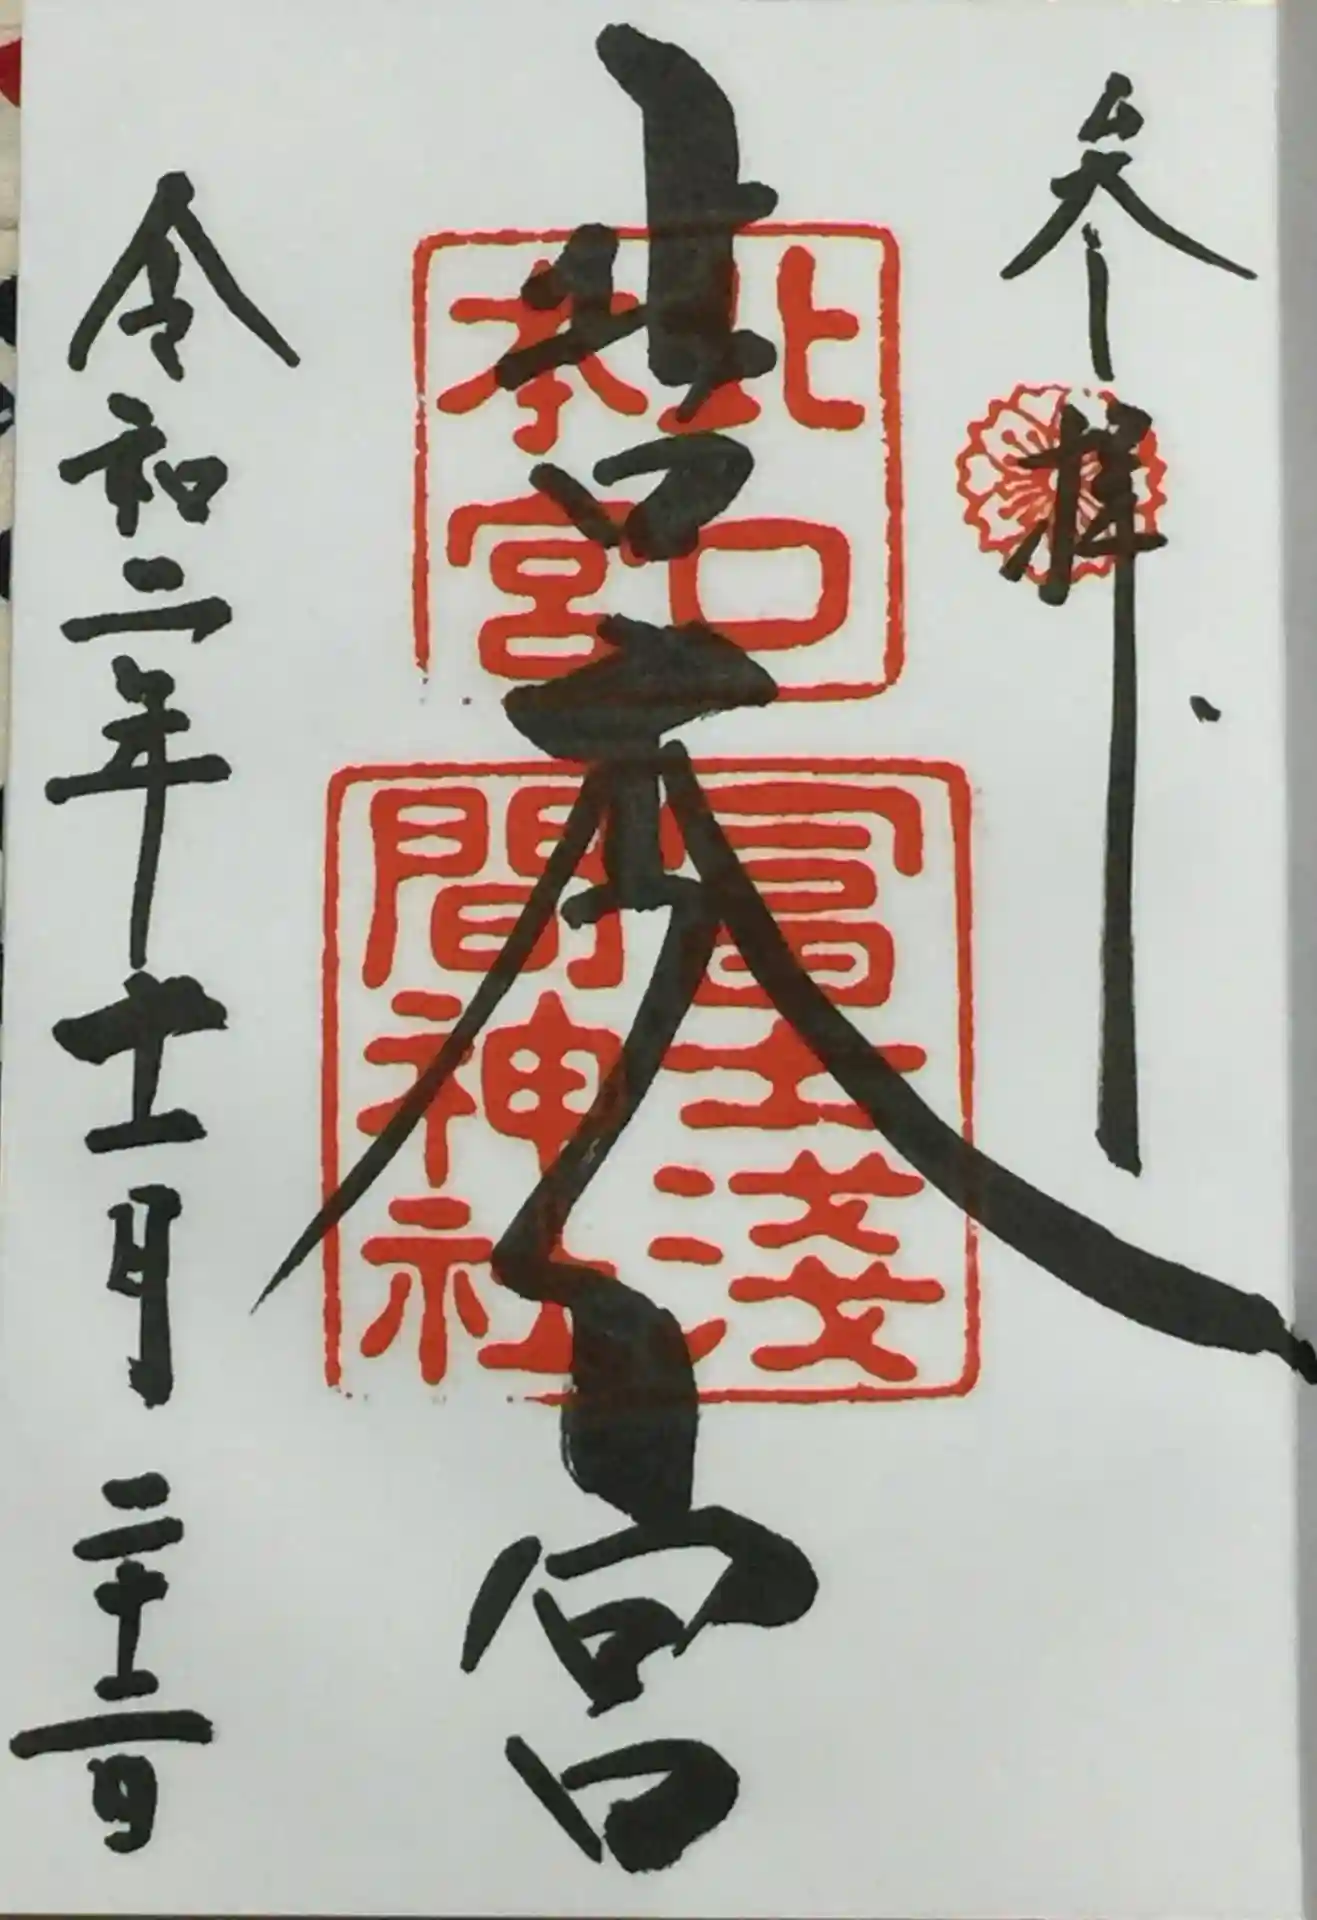 参拝
北口本宮
令和二年十一月二十二日
北口
本宮
冨士淺
間神社